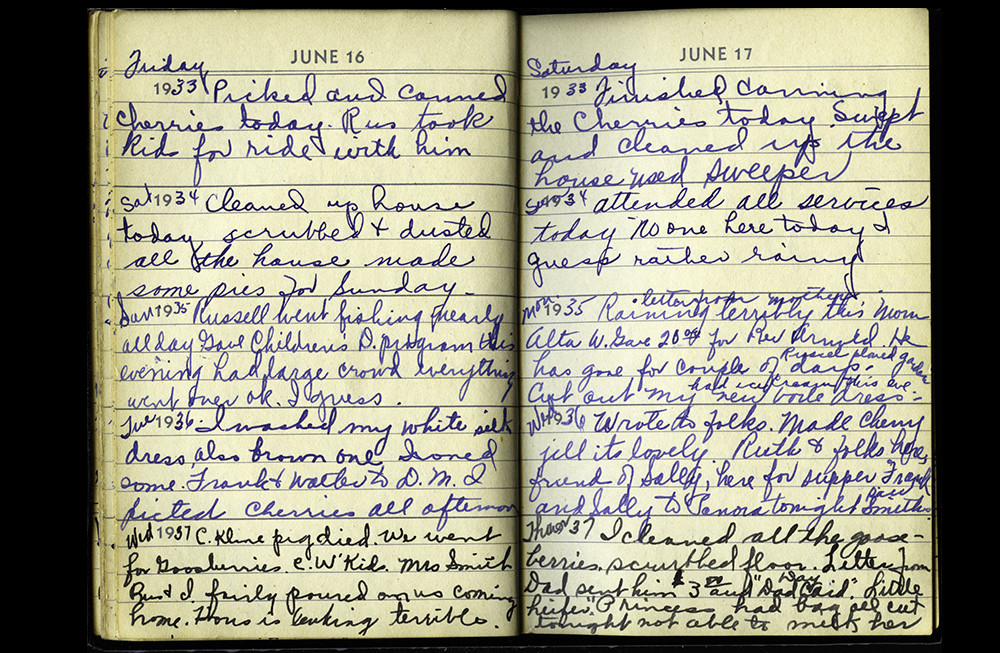 JUNE 16
Friday
1933 Picked and canned
Cherries today. Rus took
Kids for ride with him
Sat 1934 Cleaned up house
today scrubbed & dusted
all the house made
some pies for Sunday -
Sun 1935 Russell went fishing nearly
all day Gave Children's D. program this
evening had large crowd everything
went over ok. I guess.
Tue 1936 I washed my white silk
dress, also brown one, Ironed
some. Frank & Walter to D. M. I
picted Cherries all afternoon
Wed 1937 C. Kline pig died. We went
for Gooseberries. C. W' Kids. Mrs Smith
Rus & I. fairly poured on us coming
home. House is looking terrible.
JUNE 17
Saturday
1933 Finished canning
the Cherries today. Swept
and cleaned up the
house used sweeper
Sun 1934 attended all services
today No one here today I
guess rather rainy
letter from mother.
Mon 1935 Raining terribly this morn
Alta W. Gave 20 for Rev Arnold. He
has gone for couple of days. Russel plowed garden
had ice cream this eve.
Cut out my new voile dress -
Wed 1936 Wrote to folks. Made Cherry
jell its lovely. Ruth & folks here,
friend of Sally, here for supper Frank
and Sally to Panora tonight Smiths
Thurs 37 I cleaned all the goose-
berries. scrubbed floor. Letter from
Dad sent him $3 00 and "Dad's Day Card". Little
heifer "Princess had bag all cut
tonight not able to milk her